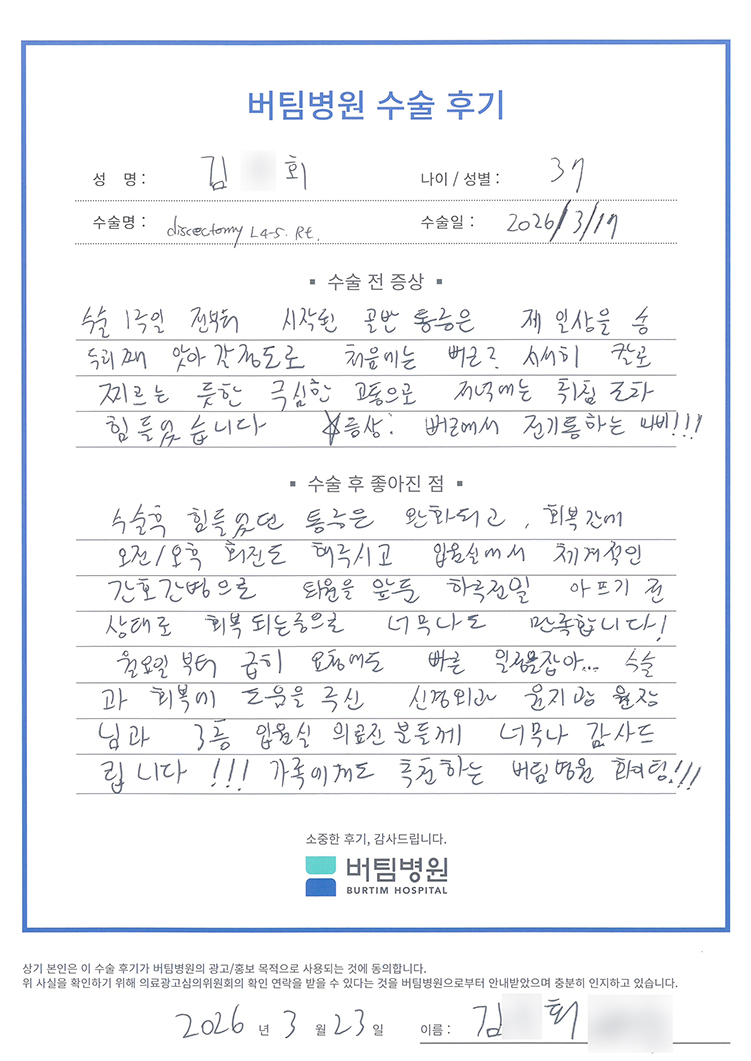 버팀병원 수술 후기
성 명 : 김 회 나이 / 성별 : 37
수술명 : discectomy L4-5. Rt. 수술일 : 2026/3/17
▪ 수술 전 증상 ▪
수술 1주일 전부터 시작된 골반 통증은 제 일상을 송
두리째 앗아 갈정도로 처음에는 뻐근? 서서히 칼로
찌르는 듯한 극심한 고통으로 저녁에는 뒤척 조차
힘들었습니다 증상: 뻐근에서 전기통하는 마비!!!
▪ 수술 후 좋아진 점 ▪
수술후 힘들었던 통증은 완화되고, 회복간에
오전/오후 회진도 해주시고 입원실에서 체계적인
간호간병으로 퇴원을 앞둔 하루전일 아프기 전
상태로 회복되는중으로 너무나도 만족합니다!
월요일부터 급히 요청에도 빠른 일정을잡아... 수술
과 회복에 도움을 주신 신경외과 윤지광 원장
님과 3층 입원실 의료진분들께 너무나 감사드
립니다 !!! 가족에게도 추천하는 버팀병원 화이팅!!!
소중한 후기, 감사드립니다.
버팀병원
BURTIM HOSPITAL
상기 본인은 이 수술 후기가 버팀병원의 광고/홍보 목적으로 사용되는 것에 동의합니다.
위 사실을 확인하기 위해 의료광고심의위원회의 확인 연락을 받을 수 있다는 것을 버팀병원으로부터 안내받았으며 충분히 인지하고 있습니다.
2026 년 3 월 23 일 이름 : 김 회